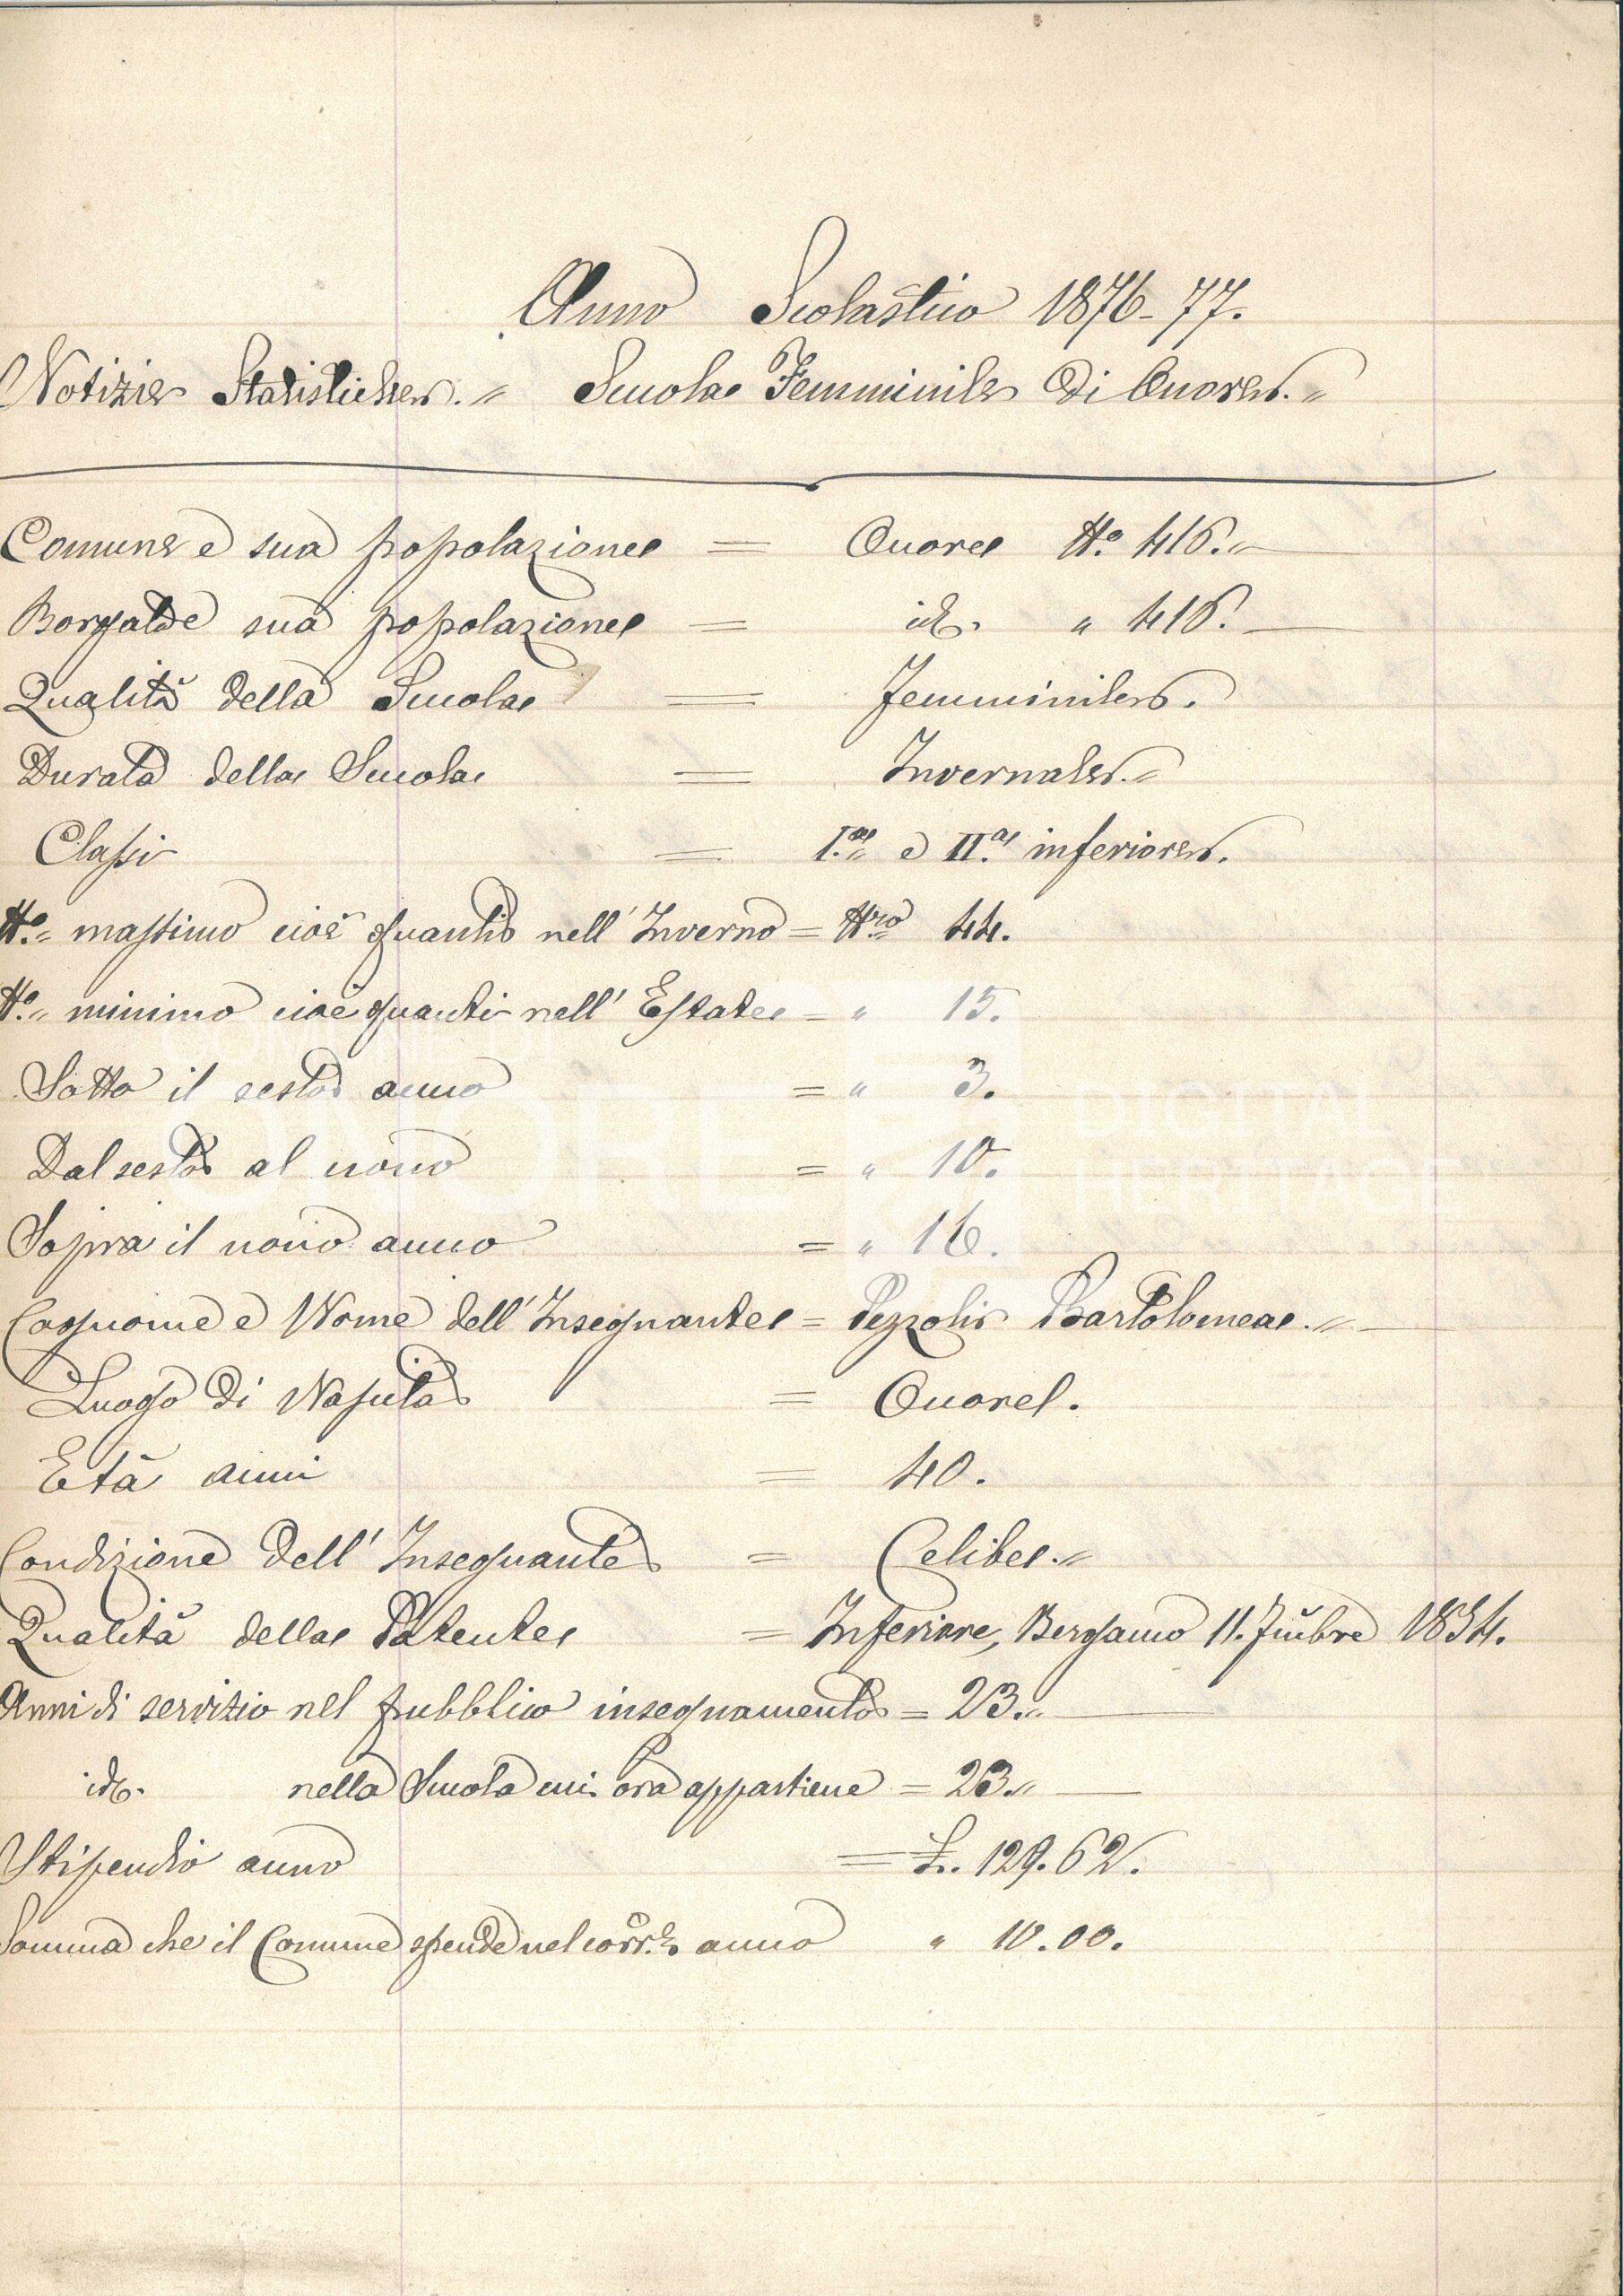 Anno Scolastico 1876-77.
Notizie Statistiche. = Scuola Femminile di Onore. =
Comune e sua popolazione = Onore N.º 416. =
Borgate e sua popolazione = id. " 416.
Qualità della Scuola = Femminile.
Durata della Scuola = Invernale. =
Classi = I.ª e II.ª inferiore.
N.º massimo cioè quanti nell'Inverno = N.ro 44.
N.º minimo cioè quanti nell'Estate = " 15.
Sotto il sesto anno = " 3.
Dal sesto al nono = " 10.
Sopra il nono anno = " 16.
Cognome e Nome dell'Insegnante = Pezzoli Bartolomea. =
Luogo di Nascita = Onore.
Età anni = 40.
Condizione dell'Insegnante = Celibe. =
Qualità della Patente = Inferiore, Bergamo 11. 1854.
Anni di servizio nel pubblico insegnamento = 23. =
id. nella Scuola cui ora appartiene = 23. =
Stipendio anno = L. 129.62.
Somma che il Comune spende nel corr.e anno " 10.00.